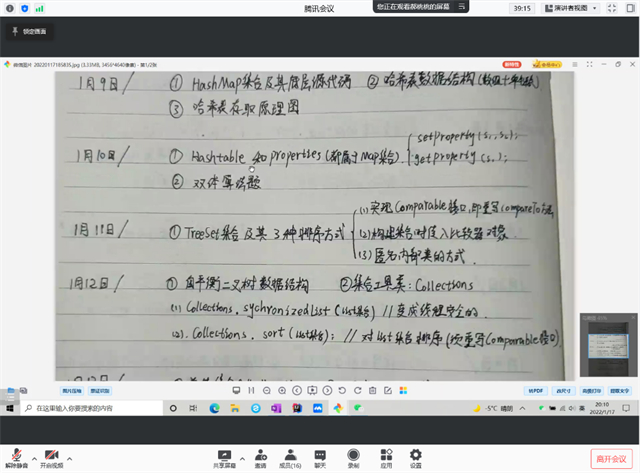 腾讯会议
您正在观看郝桃桃的屏幕
39:15
演讲者视图
锁定画面
微信图片_20220117185835.jpg (3.33MB, 3456*4640像素) - 第1/2张
会员中心
1月9日/ ① HashMap集合及其底层源代码 ② 哈希表数据结构(数组+单链表)
③ 哈希表存取原理图
1月10日/ ① Hashtable 和 properties (都属于Map集合) { setproperty(s1,s2);
getproperty(s.);
②
1月11日/ ① TreeSet集合及其3种排序方式 { (1)实现Comparable接口,即重写compareTo方法
(2)构建集合时传入比较器对象
(3)匿名内部类的方式.
1月12日/ ① 自平衡二叉树数据结构 ②集合工具类: Collections
(1) Collections. sychronizedList (List集合) // 变成线程安全的.
(2). Collections. sort (List集合); // 对List集合排序 (须重写Comparable接口)
图片压缩
票证识别
转PDF
改尺寸
图片打印
提取文字
在这里输入你要搜索的内容
-5°C 晴朗
英
20:10
2022/1/17
解除静音
开启视频
共享屏幕
邀请
成员(16)
聊天
录制
应用
设置
离开会议